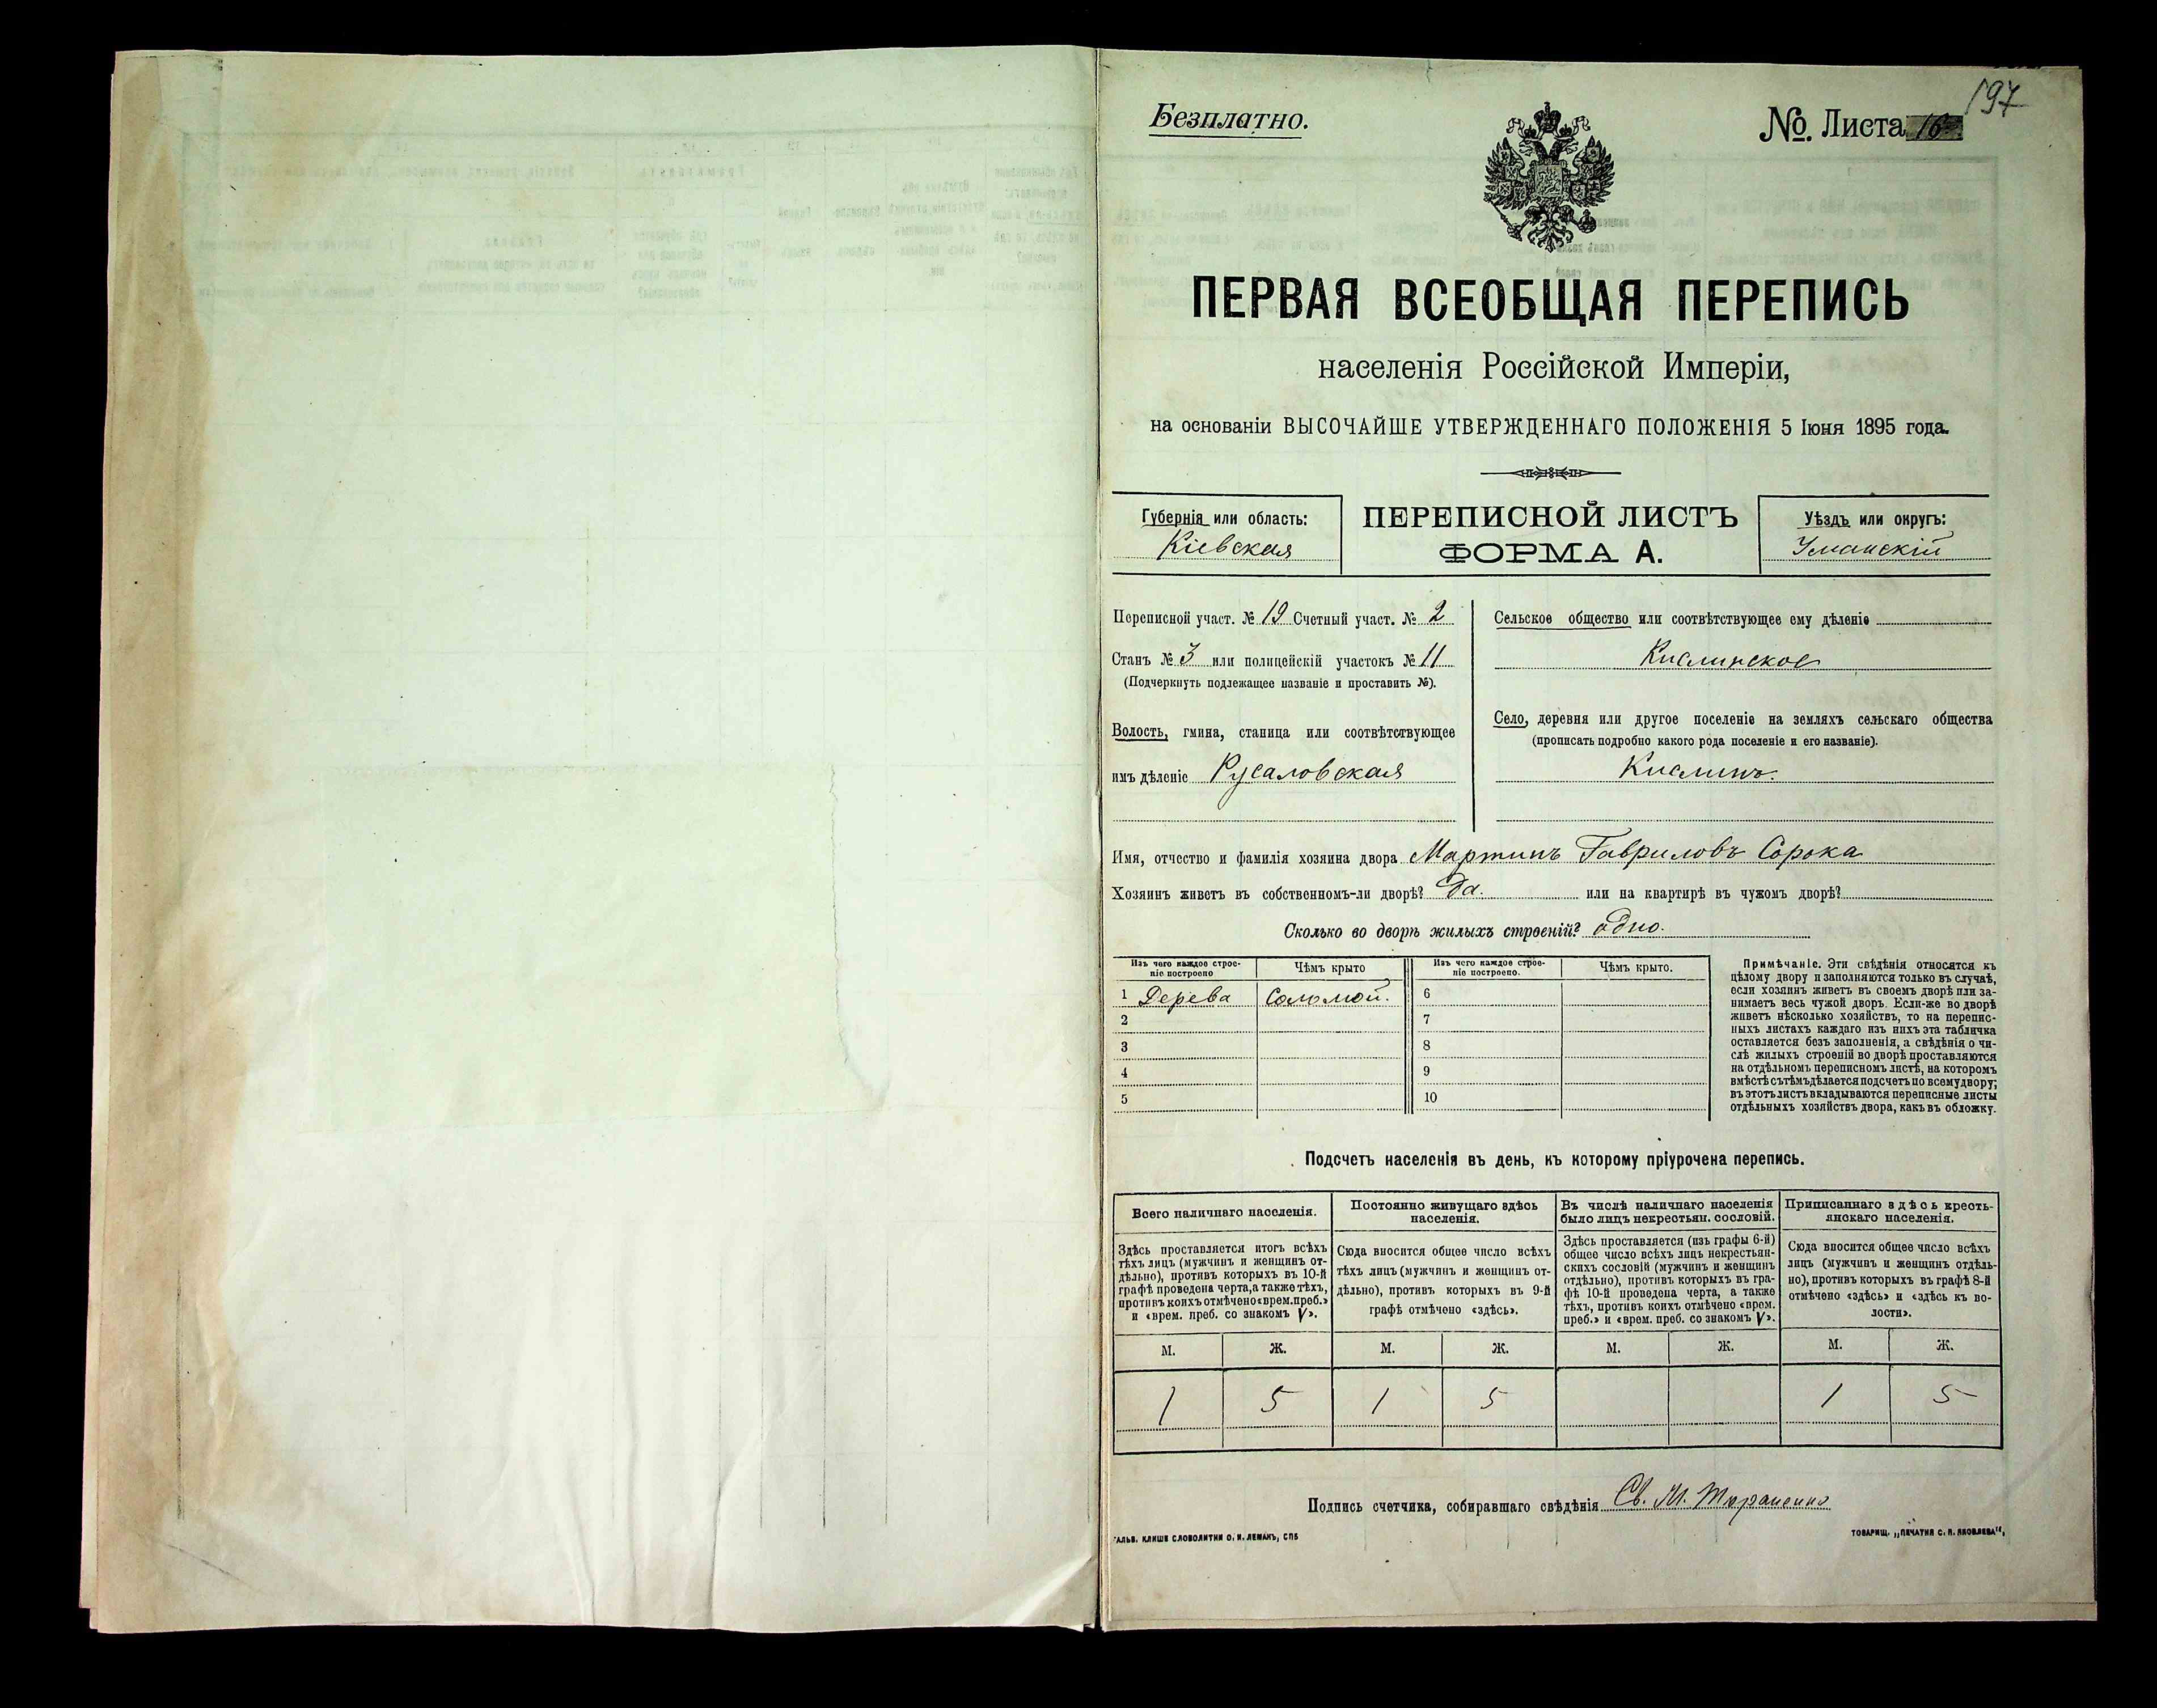 197
Безплатно.
№ Листа 16
ПЕРВАЯ ВСЕОБЩАЯ ПЕРЕПИСЬ
населенія Россійской Имперіи,
на основаніи ВЫСОЧАЙШЕ УТВЕРЖДЕННАГО ПОЛОЖЕНІЯ 5 Іюня 1895 года.
Губернія или область:
Кіевская
ПЕРЕПИСНОЙ ЛИСТЪ
ФОРМА А.
Уѣздъ или округъ:
Уманскій
Переписной участ. № 19 Счетный участ. № 2
Станъ № 3 или полицейскій участокъ № 11
(Подчеркнуть подлежащее названіе и проставить №).
Волость, гмина, станица или соотвѣтствующее
имъ дѣленіе Русаловская
Сельское общество или соотвѣтствующее ему дѣленіе
Кислинское
Село, деревня или другое поселеніе на земляхъ сельскаго общества
(прописать подробно какого рода поселеніе и его названіе).
Кислинъ.
Имя, отчество и фамилія хозяина двора Мартинъ Гавриловъ Сорока
Хозяинъ живетъ въ собственномъ-ли дворѣ? Да. или на квартирѣ въ чужомъ дворѣ?
Сколько во дворѣ жилыхъ строеній? одно.
Изъ чего каждое строе-
ніе построено
Чѣмъ крыто
Изъ чего каждое строе-
ніе построено.
Чѣмъ крыто.
1 Дерева Соломой. 6
2 7
3 8
4 9
5 10
Примѣчаніе. Эти свѣдѣнія относятся къ
цѣлому двору и заполняются только въ случаѣ,
если хозяинъ живетъ въ своемъ дворѣ или за-
нимаетъ весь чужой дворъ. Если-же во дворѣ
живетъ нѣсколько хозяйствъ, то на перепис-
ныхъ листахъ каждаго изъ нихъ эта табличка
оставляется безъ заполненія, а свѣдѣнія о чи-
слѣ жилыхъ строеній во дворѣ проставляются
на отдѣльномъ переписномъ листѣ, на которомъ
вмѣстѣ съ тѣмъ дѣлается подсчетъ по всему двору;
въ этотъ листъ вкладываются переписные листы
отдѣльныхъ хозяйствъ двора, какъ въ обложку.
Подсчетъ населенія въ день, къ которому пріурочена перепись.
Всего наличнаго населенія.
Здѣсь проставляется итогъ всѣхъ
тѣхъ лицъ (мужчинъ и женщинъ от-
дѣльно), противъ которыхъ въ 10-й
графѣ проведена черта, а также тѣхъ,
противъ коихъ отмѣчено «врем. преб.»
и «врем. преб. со знакомъ V».
Постоянно живущаго здѣсь
населенія.
Сюда вносится общее число всѣхъ
тѣхъ лицъ (мужчинъ и женщинъ от-
дѣльно), противъ которыхъ въ 9-й
графѣ отмѣчено «здѣсь».
Въ числѣ наличнаго населенія
было лицъ некрестьян. сословій.
Здѣсь проставляется (изъ графы 6-й)
общее число всѣхъ лицъ некрестьян-
скихъ сословій (мужчинъ и женщинъ
отдѣльно), противъ которыхъ въ гра-
фѣ 10-й проведена черта, а также
тѣхъ, противъ коихъ отмѣчено «врем.
преб.» и «врем. преб. со знакомъ V».
Приписаннаго здѣсь кресть-
янскаго населенія.
Сюда вносится общее число всѣхъ
лицъ (мужчинъ и женщинъ отдѣль-
но), противъ которыхъ въ графѣ 8-й
отмѣчено «здѣсь» и «здѣсь къ во-
лости».
М. Ж. М. Ж. М. Ж. М. Ж.
1 5 1 5 1 5
Подпись счетчика, собиравшаго свѣдѣнія Св. М.
ГАЛЬВ. КЛИШЕ СЛОВОЛИТНИ О. И. ЛЕМАНЪ, СПБ
ТОВАРИЩ. „ПЕЧАТНЯ С. П. ЯКОВЛЕВА",